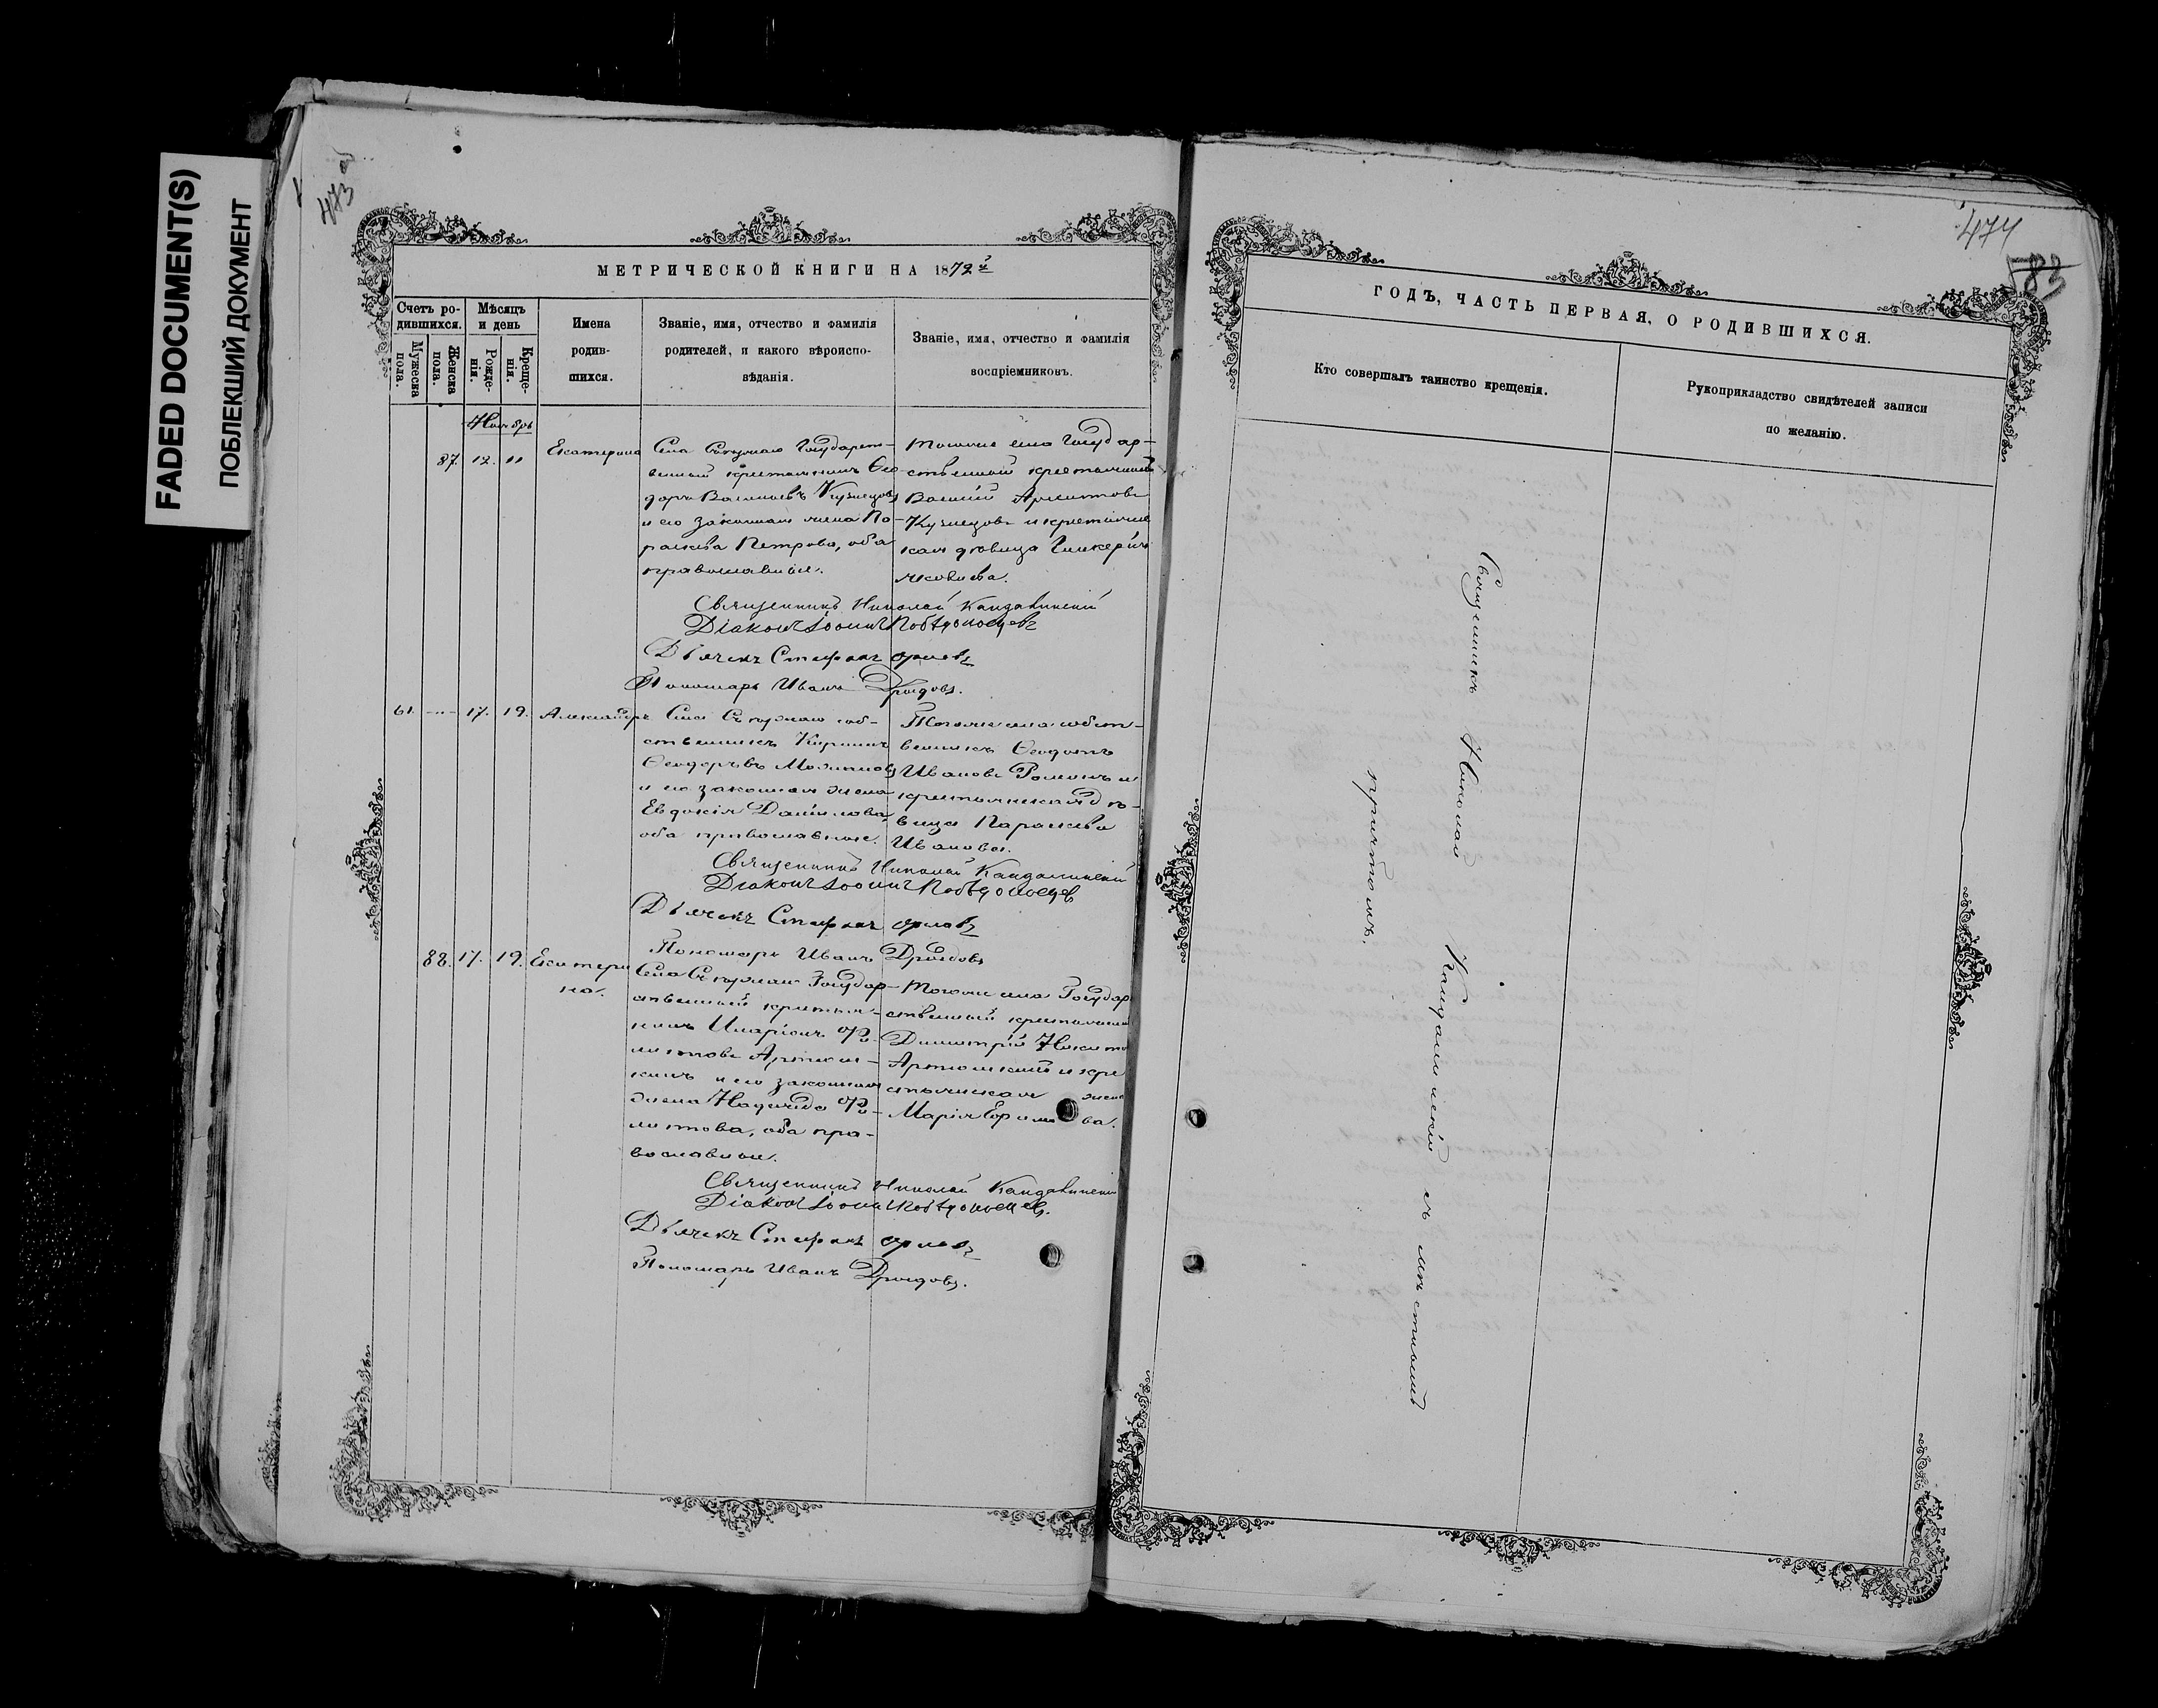 FADED DOCUMENT(S)
ПОБЛЕКШИЙ ДОКУМЕНТ
473
474
МЕТРИЧЕСКОЙ КНИГИ НА 1872й
Счетъ ро-
дившихся.
Мужеска
пола.
Женска
пола.
Мѣсяцъ
и день
Рожде-
нія.
Креще-
нія.
Имена
родив-
шихся.
Званіе, имя, отчество и фамилія
родителей, и какого вѣроиспо-
вѣданія.
Званіе, имя, отчество и фамилія
воспріемниковъ.
Ноябрь
87. 12.
Екатерина
Села Государст-
венный крестьянинъ Ѳео-
доръ Васильевъ Кузнецовъ
и его законная жена Па-
раскева Петрова, оба
православные.
Тогоже села Государ-
ственный крестьянинъ
Василій
Кузнецовъ и крестьянс-
кая дѣвица Гликерія
Яковлева.
Священникъ Николай
Діаконъ Іоаннъ Побѣдоносцевъ
Дьячекъ Стефанъ Орловъ
Пономарь Иванъ Дроздовъ.
61. 17. 19. Александръ
Села соб-
ственникъ
Ѳеодоровъ
и его законная жена
Евдокія Данилова,
оба православные.
Тогоже села собст-
венникъ Ѳеодотъ
Ивановъ и
крестьянская дѣ-
вица Параскева
Иванова.
Священникъ Николай
Діаконъ Іоаннъ Побѣдоносцев
Дьячекъ Стефанъ Орловъ
Пономарь Иванъ Дроздовъ
88. 17. 19. Екатери
на.
Села Государ-
ственный крестья-
нинъ Иларіонъ Фи-
липповъ
и его законная
жена Надежда Фи-
липпова, оба пра-
вославные.
Тогоже села Государ
ственный крестьянинъ
Димитрій Никитинъ
и кре
стьянская жена
Марія
Священникъ Николай
Діаконъ Іоаннъ Побѣдоносцевъ.
Дьячекъ Стефанъ Орловъ
Пономарь Иванъ Дроздовъ.
ГОДЪ, ЧАСТЬ ПЕРВАЯ, О РОДИВШИХСЯ.
Кто совершалъ таинство крещенія.
Рукоприкладство свидѣтелей записи
по желанію.
Священникъ Николай съ мѣстнымъ
причтомъ.